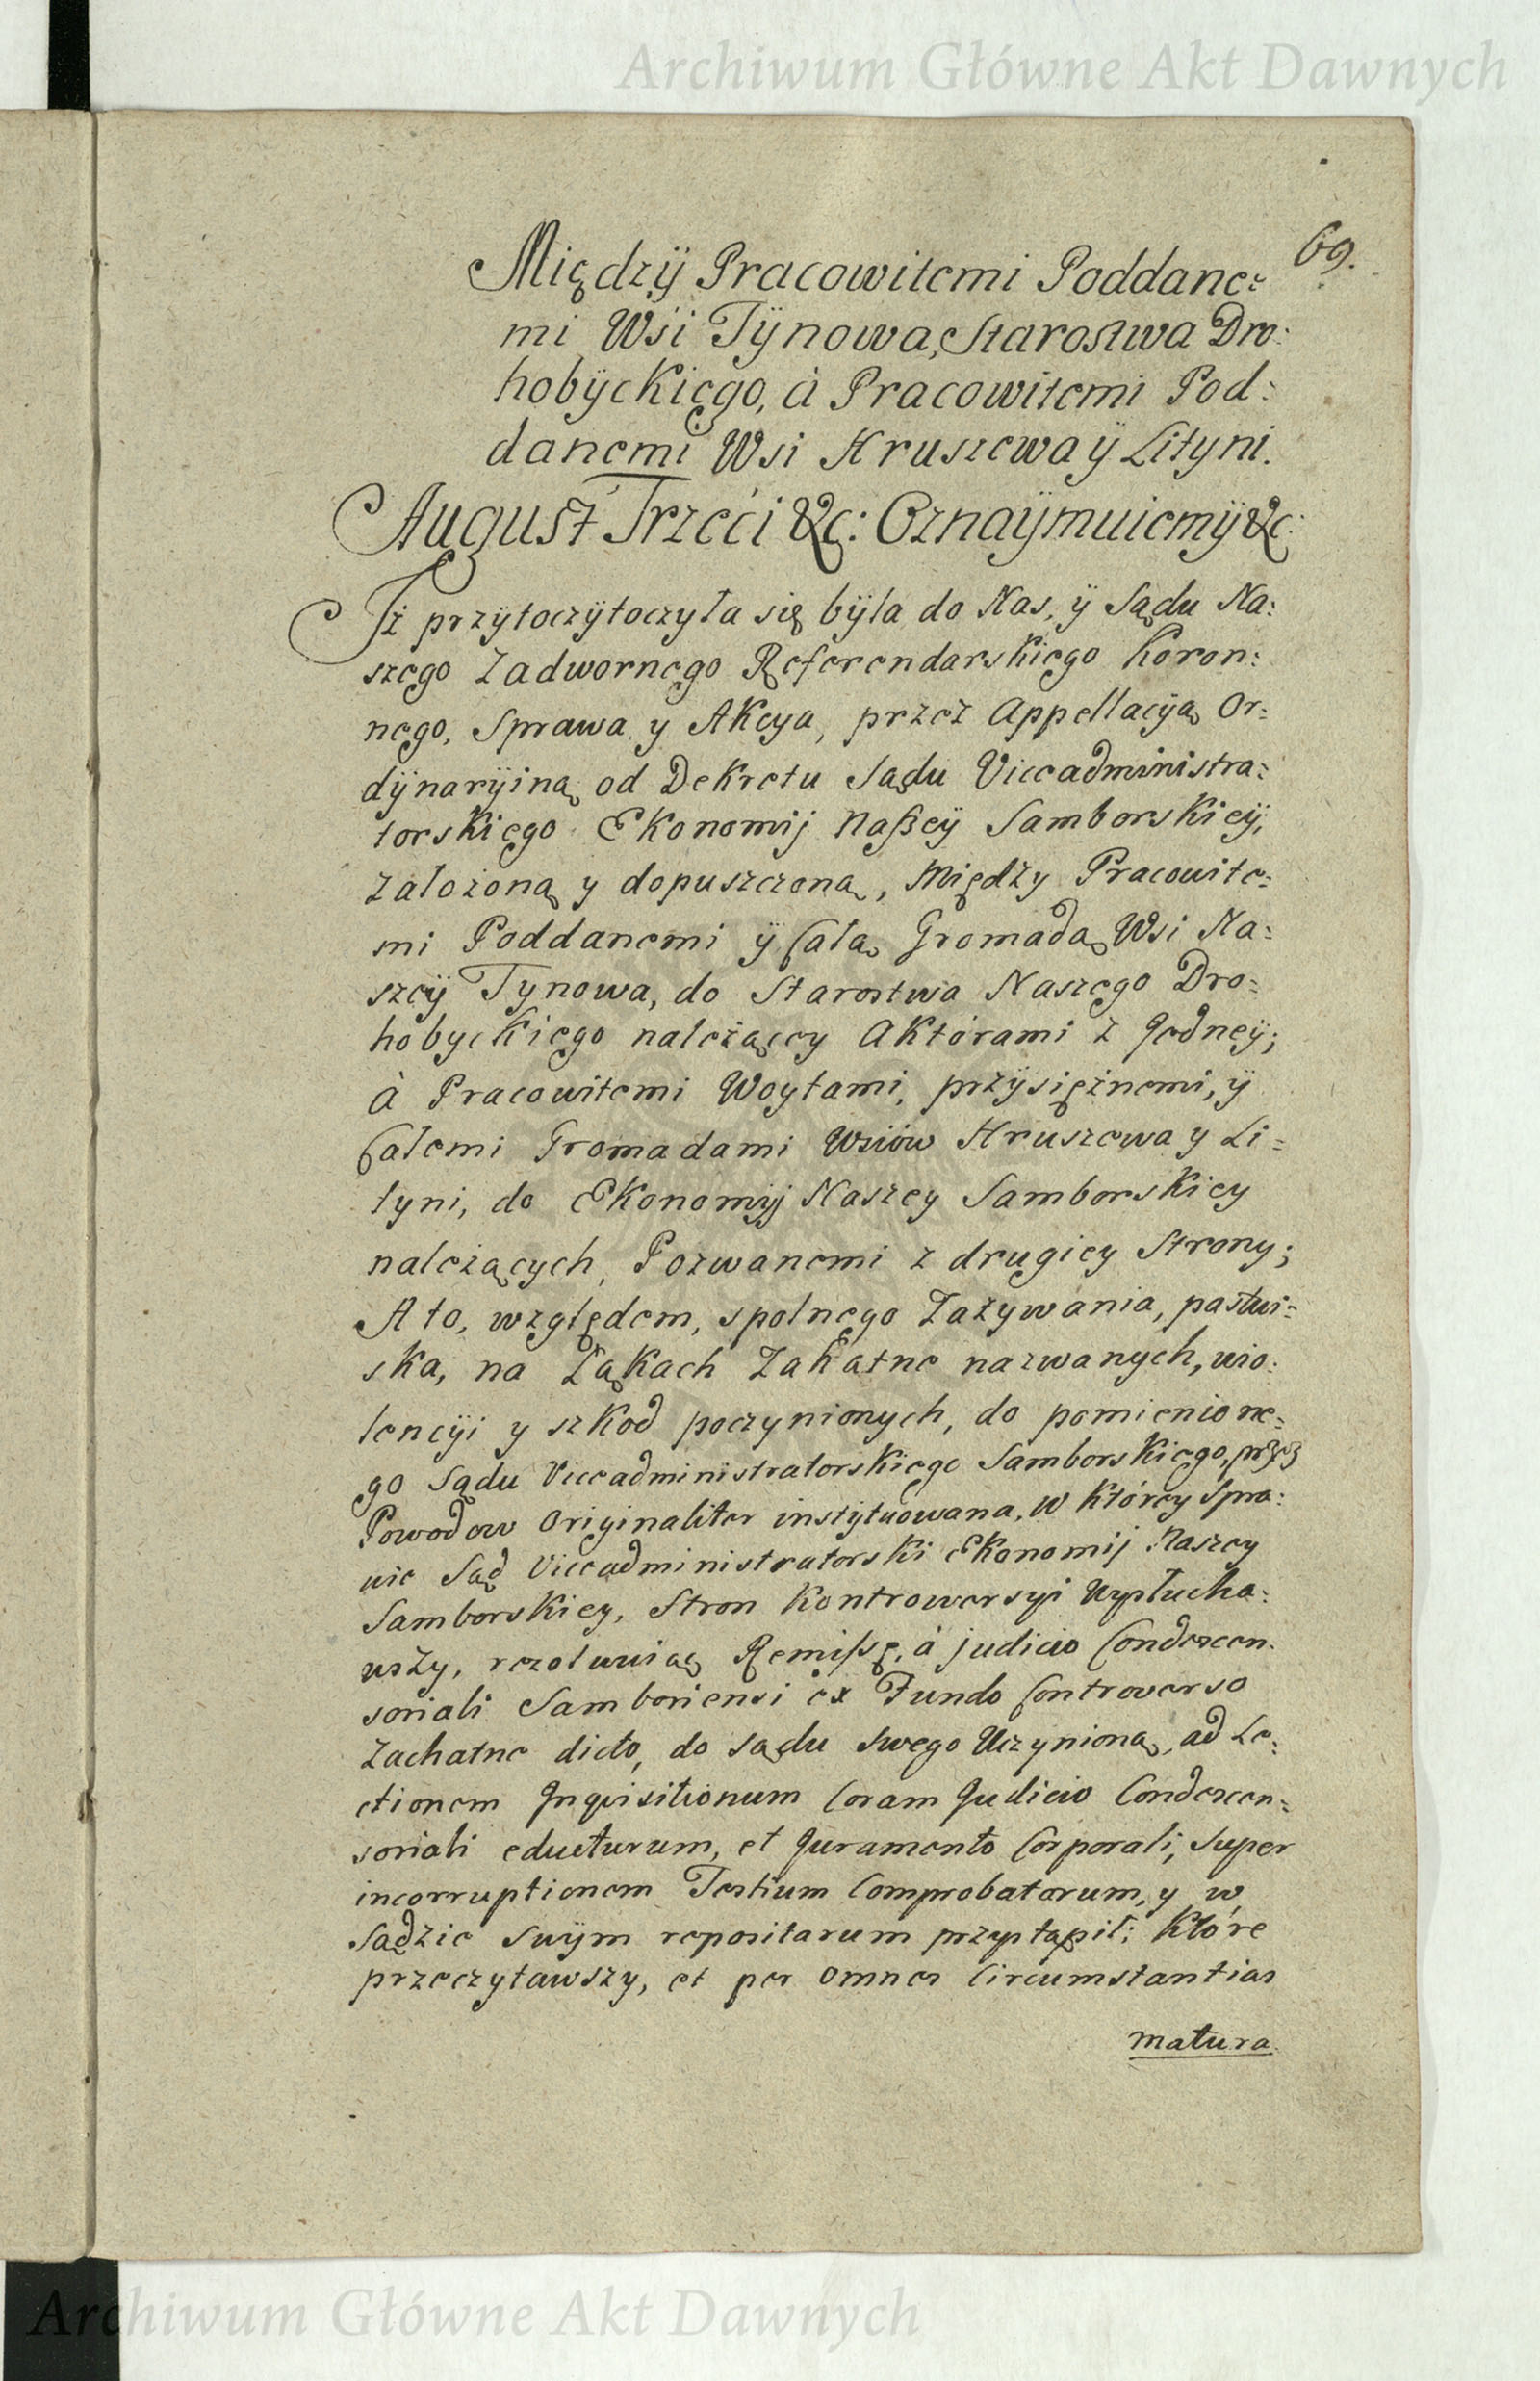 Archiwum Główne Akt Dawnych
69.
Między Pracowitemi Poddane:
mi Wsi Tÿnowa, Starostwa Dro:
hobÿckiego, à Pracowitemi Pod:
danemi Wsi Hruszewa ÿ Lityni.
August Trzeći &c: Oznaÿmuiemÿ &c:
Iż przÿtoczÿtoczyła się bÿła do Nas, ÿ Sądu Na:
szego Zadwornego Referendarskiego Koron:
nego, Sprawa y Akcya, przez Appellacÿą Or:
dÿnarÿiną od Dekretu Sądu Viceadministra:
torskiego Ekonomij Naßeÿ Samborskieÿ,
założoną y dopuszczoną, Między Pracowite:
mi Poddanemi ÿ Całą Gromadą Wsi Na:
szeÿ Tynowa, do Starostwa Naszego Dro:
hobyckiego należącey Aktórami z Jedneÿ;
à Pracowitemi Woytami, przÿsiężnemi, ÿ
Całemi Gromadami Wsiów Hruszewa y Li:
tyni, do Ekonomij Naszey Samborskiey
należących, Pozwanemi z drugiey Strony;
A to, względem, spolnego Zażywania, pastwi:
ska, na Łąkach Zahatne nazwanych, wio:
lencÿi y szkod poczynionych, do pomienione:
go Sądu Viceadministratorskiego Samborskiego, przez
Powodow Originaliter instÿtuowana, w Którey Spra:
wie Sąd Viceadministratorski Ekonomij Naszey
Samborskiey, Stron Kontrowersyi Wysłucha:
wszy, rezolwuiąc Remißę, à judicio Condescen:
soriali Samboriensi ex Fundo Controverso
Zachatne dicto, do Sądu swego Uczynioną, ad Le:
ctionem Inquisitionum Coram Judicio Condescen:
soriali educturum, et Juramento Corporali, super
incorruptionem Testium Comprobatarum, y w
Sądzie Swÿm repositarum przystąpił; Które
przeczytawszy, et per omnes Circumstantias
matura
Archiwum Główne Akt Dawnych